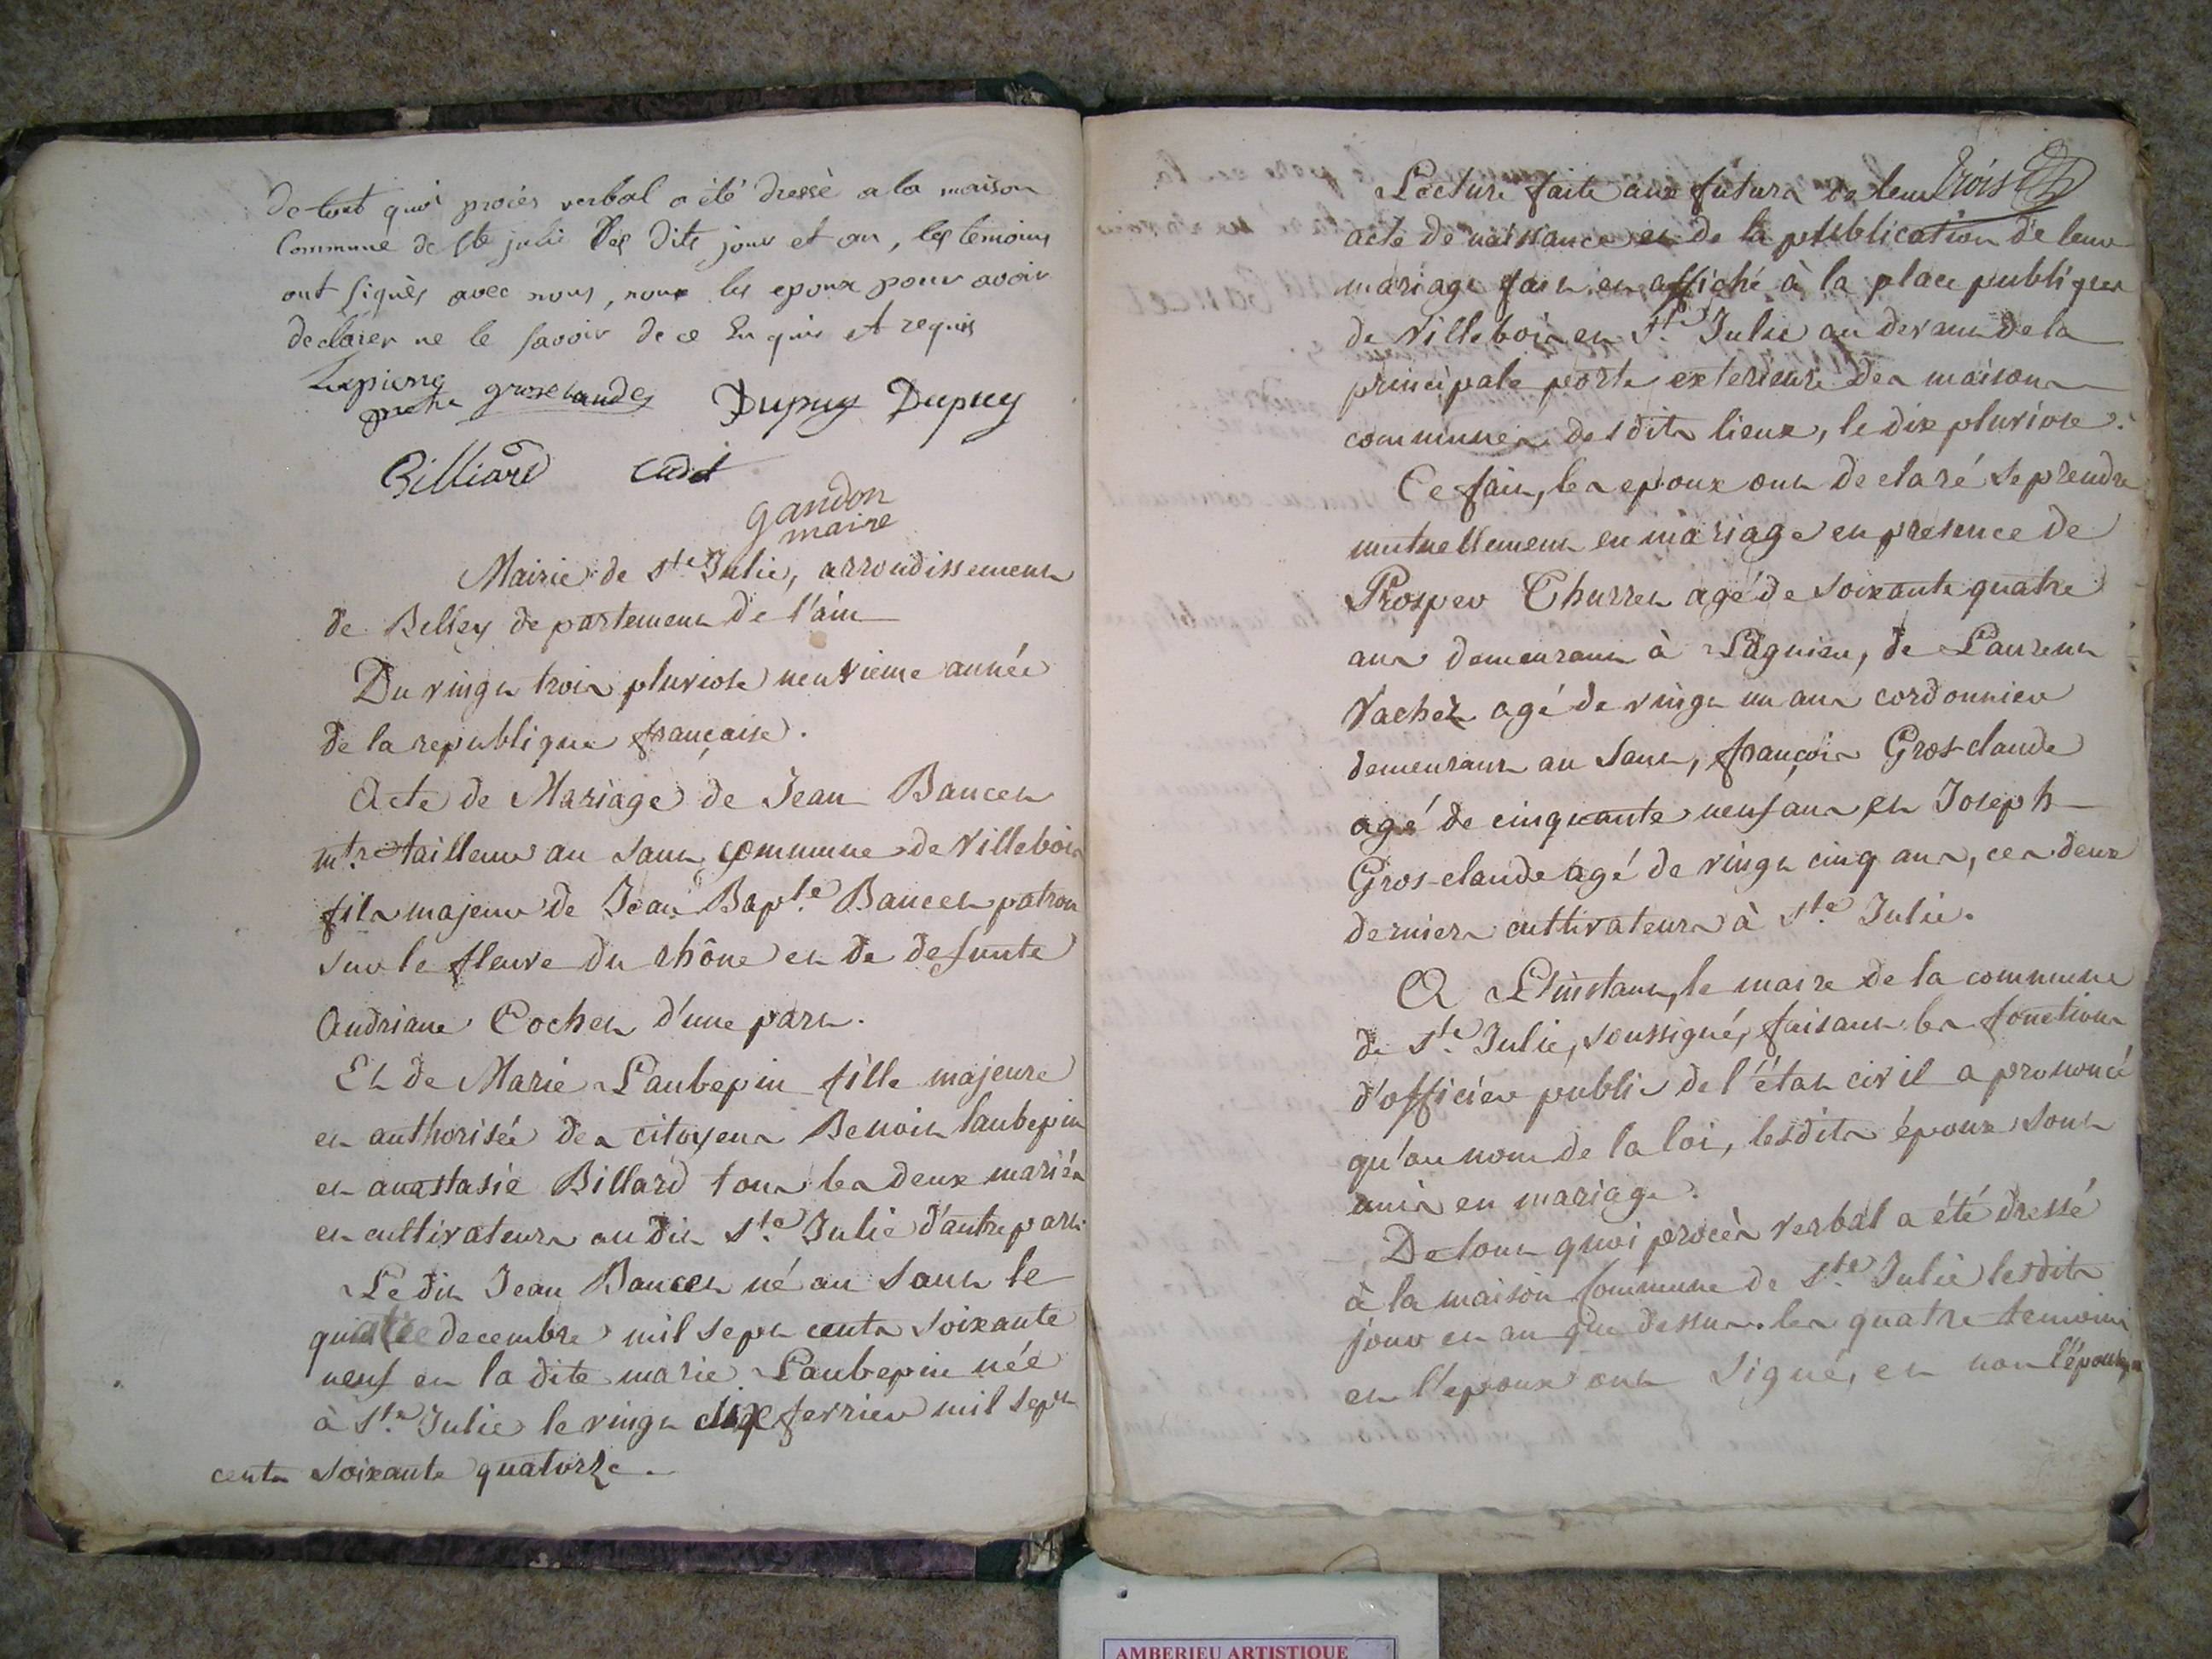 de tout quoi procès verbal a été dressé a la maison
Commune de Ste julie les dits jour et an, les temoins
ont signès avec nous, non les epoux pour avoir
declarer ne le savoir de ce Enquis et requis
grosclaudes Dupuy Dupuy
Billiard Cadet
gandon
maire
Mairie de Ste. Julie, arrondissement
de Belley departement de l'ain
Du vingt trois pluviose neuvieme année
de la republique française.
Acte de Mariage de Jean Bancet
mtre. tailleur au Sault, commune de Villebois
fils majeur de Jean Bapte. Bancet patron
sur le fleuve du rhône et de defunte
Andriane Cochet d'une part.
Et de Marie Laubepin fille majeure
et authorisée des citoyens Benoit laubepin
et anastasie Billard tous les deux mariés
et cultivateurs au dit Ste. Julie d'autre part.
Le dit Jean Bancet né au Sault le
decembre mil sept cents soixante
neuf et la dite marie Laubepin née
à Ste. Julie le vingt six fevrier mil sept
cents soixante quatorze.
trois
Lecture faite aux futurs de leur
acte de naissance et de la publication de leur
mariage fait et affiché à la place publique
de Villebois et Ste. Julie au devant de la
principale porte exterieure des maisons
communes desdits lieux, le dix pluviose.
Ce fait, les epoux ont declaré se prendre
mutuellement en mariage en presence de
Prosper Charret agé de soixante quatre
ans demeurant à Lagnieu, de Laurent
Vachez agé de vingt un ans cordonnier
demeurant au Sault, françois Gros-claude
agé de cinquante neuf ans et Joseph
Gros-claude agé de vingt cinq ans, ces deux
derniers cultivateurs à Ste. Julie.
A L'instant, le maire de la commune
de Ste. Julie, soussigné, faisant les fonctions
d'officier public de l'état civil a prononcé
qu'au nom de la loi, lesdits époux sont
unis en mariage.
De tout quoi procès verbal a été dressé
à la maison commune de Ste. Julie lesdits
jour et an que dessus. les quatre temoins
et l'epoux ont signé, et non l'épouse
AMBERIEU ARTISTIQUE